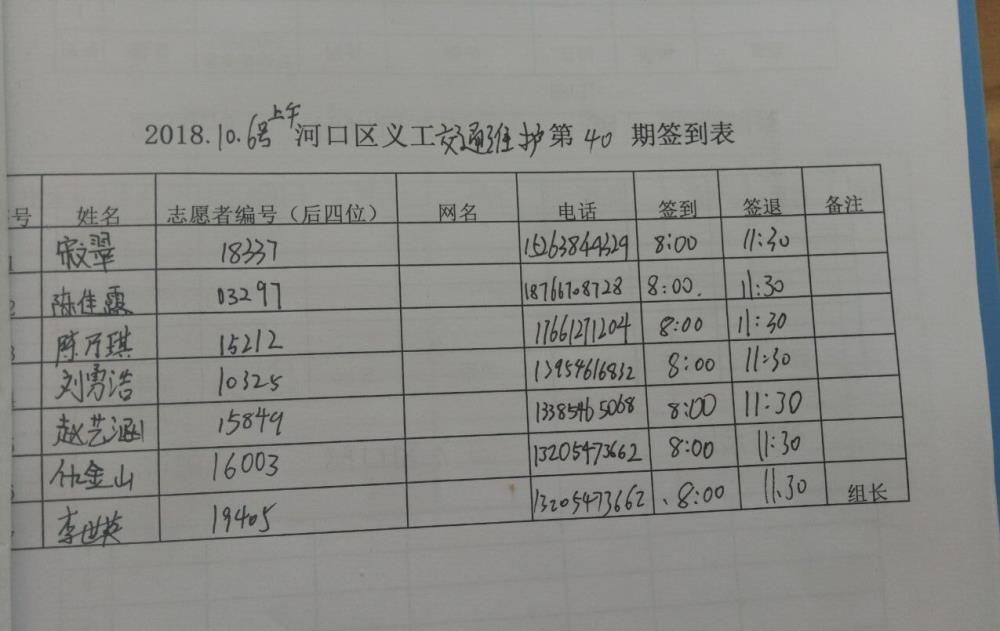 2018.10.6号上午河口区义工交通维护第 40 期签到表
号 姓名 志愿者编号（后四位） 网名 电话 签到 签退 备注
宋翠 18337 15263844329 8:00 11:30
2 陈佳霞 03297 18766708728 8:00. 11:30
3 陈乃琪 15212 17661271204 8:00 11:30
刘勇浩 10325 13954616832 8:00 11:30
赵艺涵 15849 13385465068 8:00 11:30
仇金山 16003 13205473662 8:00 11:30
李世英 19405 13205473662 、8:00 11:30 组长